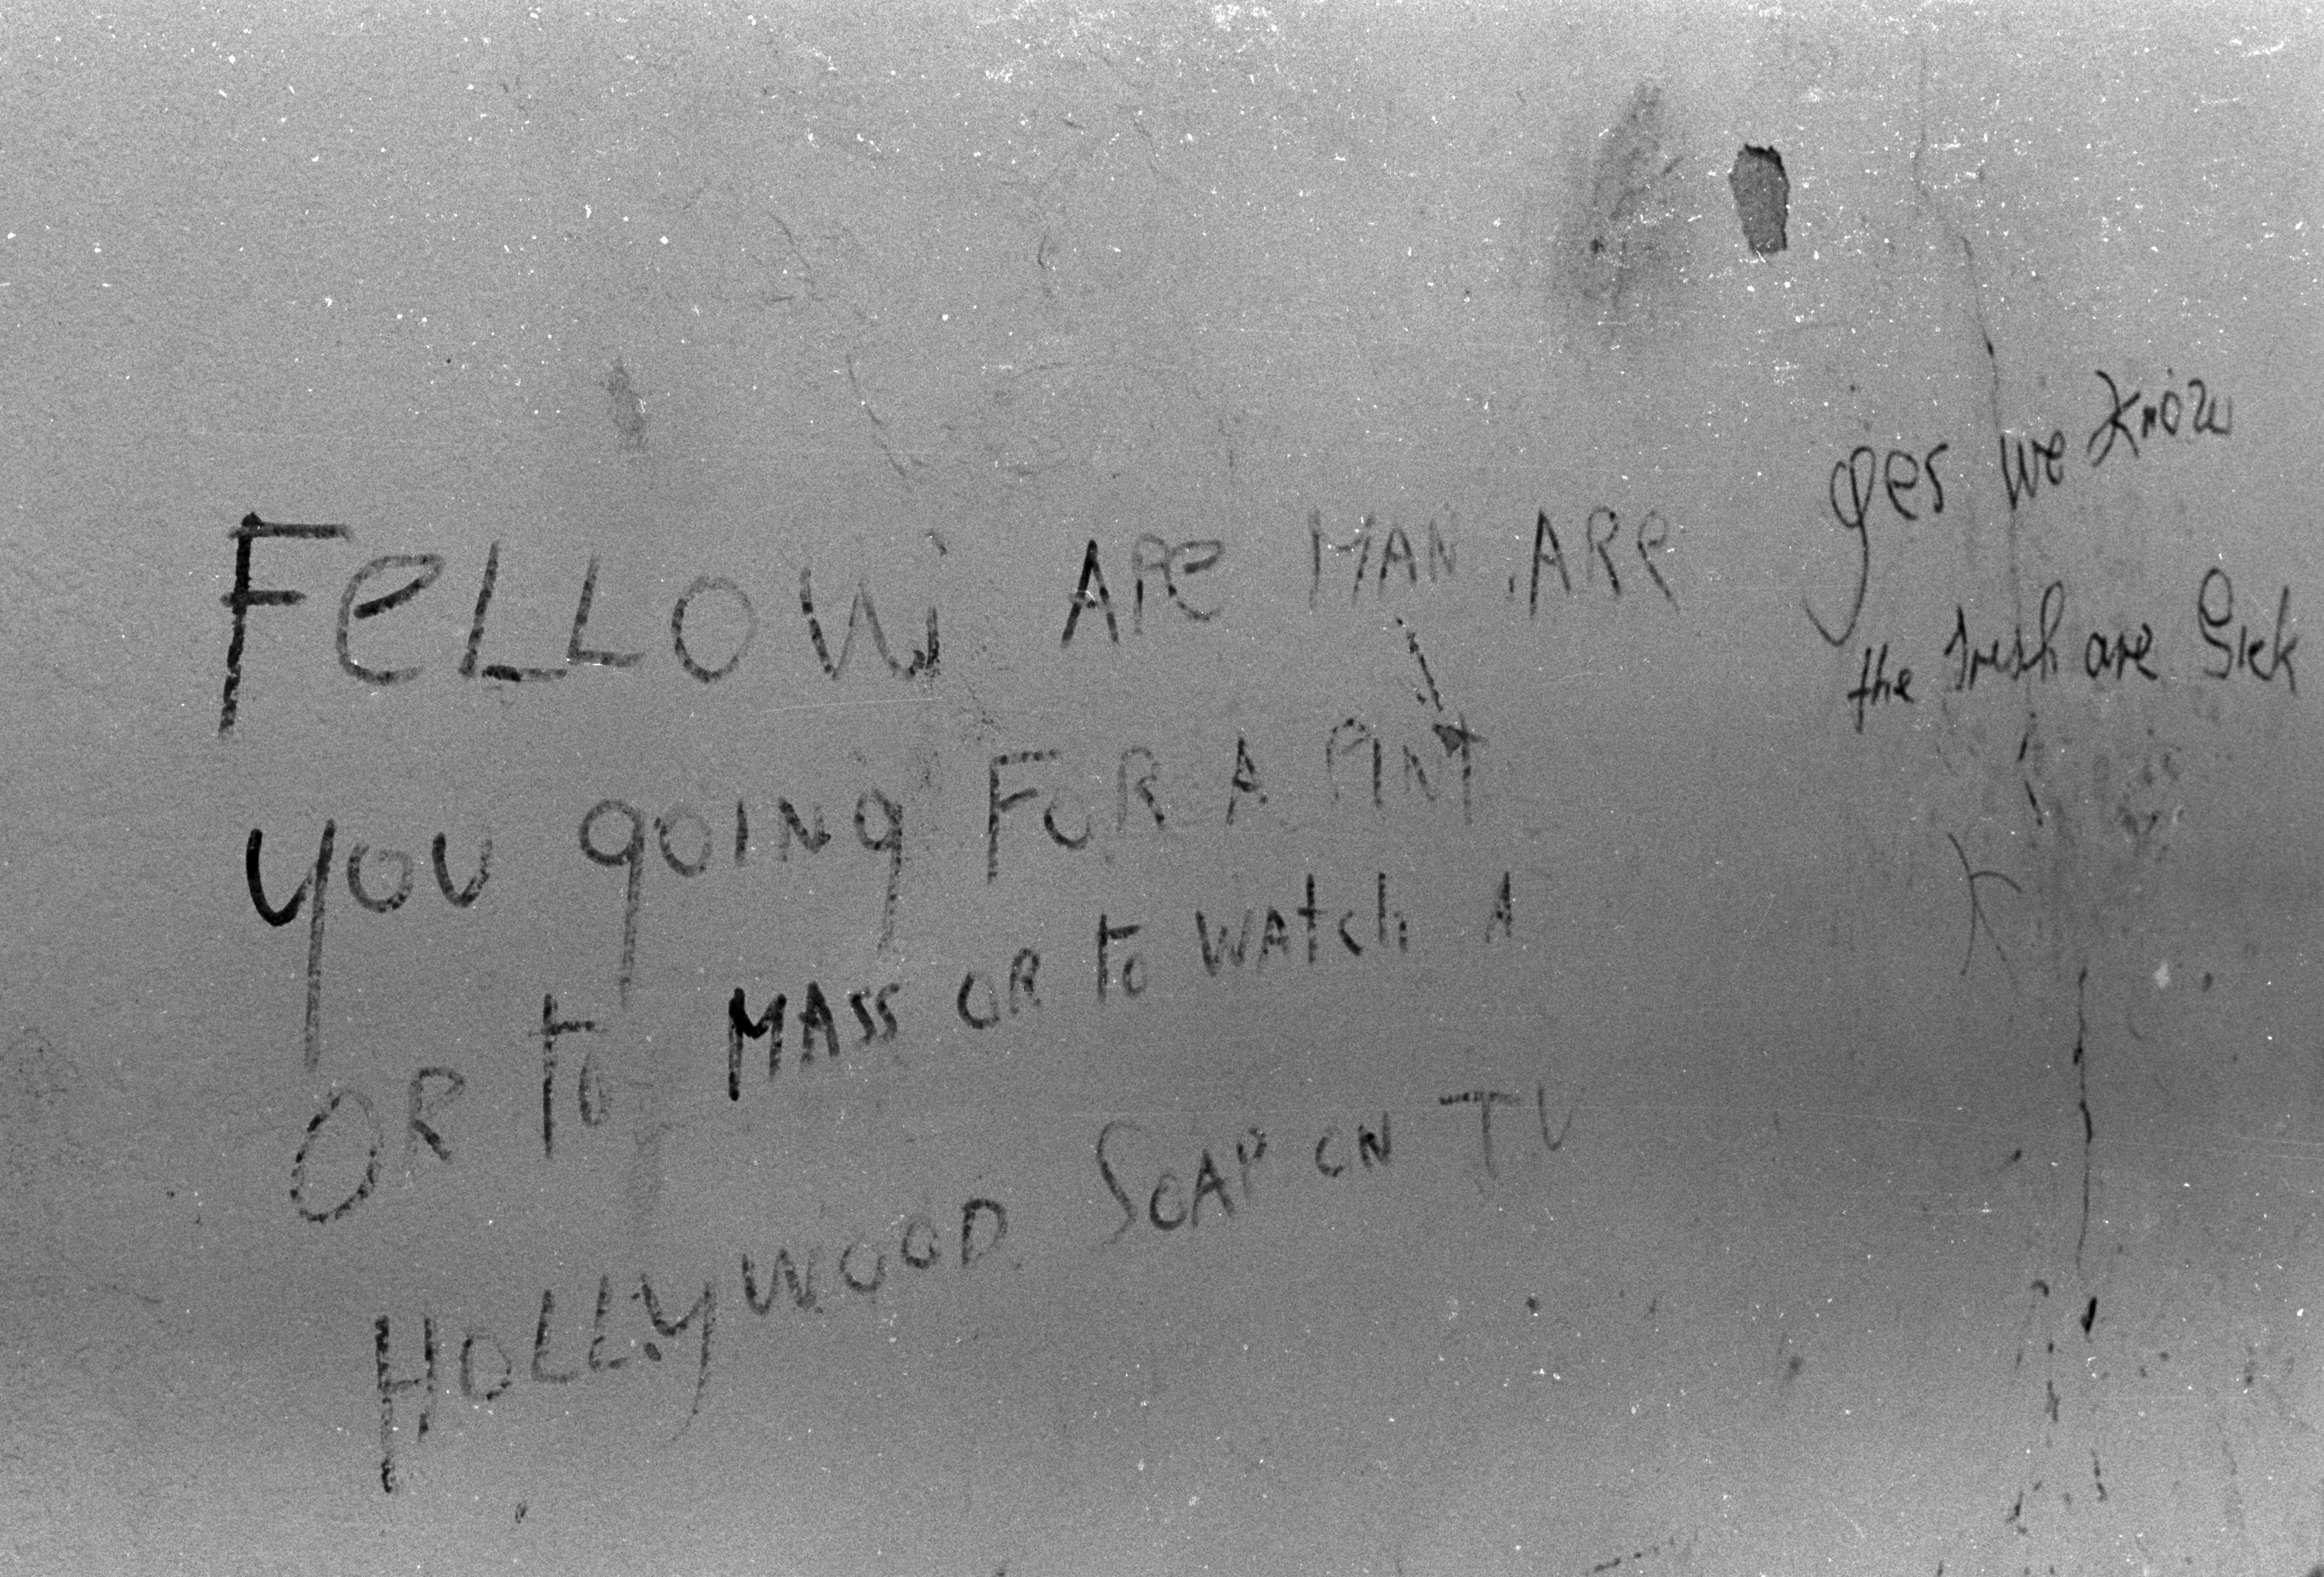 FeLLOW ARe MAN ARe
you going FOR A PINT
OR to MASS OR to WAtch A
HOLLYWOOD SOAP ON TV
yes we know
the Irish are Sick